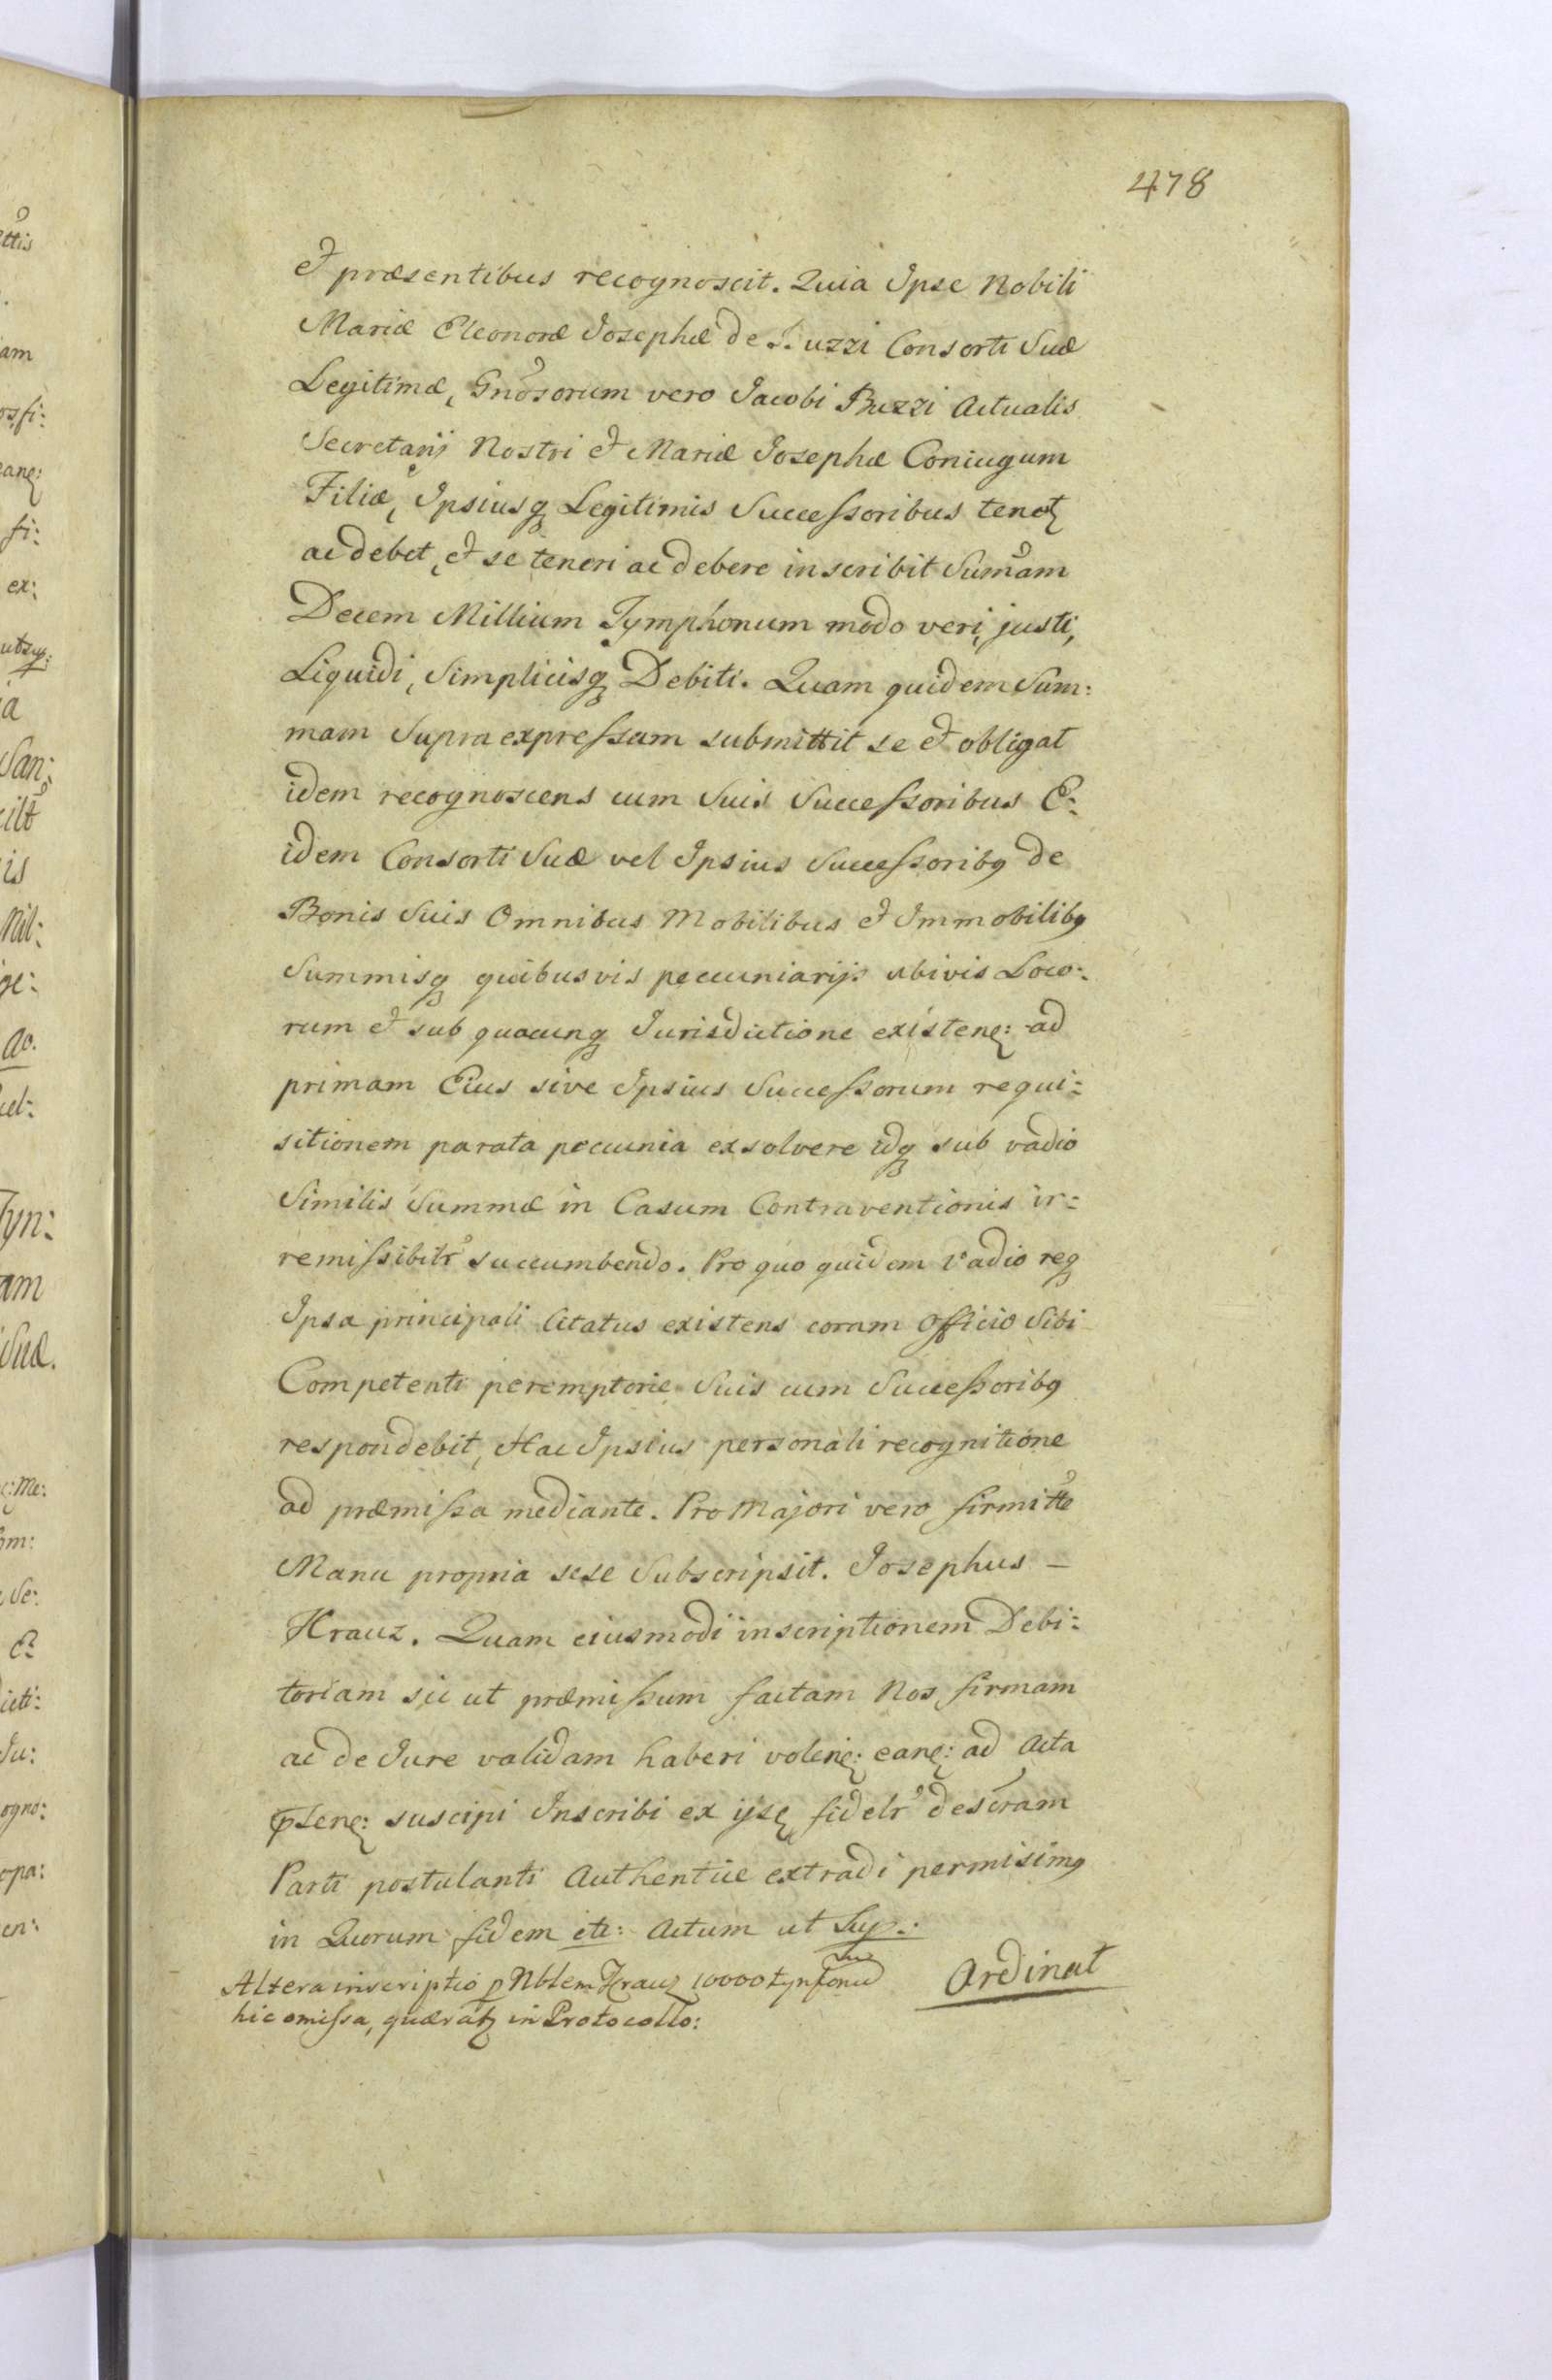 478
et præsentibus recognoscit. Quia Ipse Nobili
Mariæ Eleonoræ Josephæ de Buzzi Consorti Suæ
Legitimæ, Gnosorum vero Jacobi Buzzi Actualis
Secretarij Nostri et Mariæ Josephæ Coniugum
Filiæ, Ipsiusq Legitimis Successoribus tenet
ac debet, et se teneri ac debere inscribit Sumam
Decem Millium Tymphonum modo veri, justi,
Liquidi, Simplicisq Debiti. Quam quidem Sum:
mam Supra expressam submittit se et obligat
idem recognoscens cum Suis Successoribus E:
idem Consorti Suæ vel Ipsius Successoribq de
Bonis Suis Omnibus Mobilibus et Immobilibq
Summisq quibusvis pecuniarijs ubivis Loco:
rum et sub quacunq Jurisdictione existen: ad
primam Eius sive Ipsius Successorum requi:
sitionem parata pecunia exsolvere idq sub vadio
Similis Summæ in Casum Contraventionis ir:
remissibilr succumbendo. Pro quo quidem Vadio req
Ipsa principali Citatus existens coram Officio Sibi
Competenti peremptorie Suis cum Successoribq
respondebit, Hac Ipsius personali recognitione
ad præmissa mediante. Pro Majori vero firmitte
Manu propria sese Subscripsit. Josephus –
Krauz. Quam eiusmodi inscriptionem Debi:
toriam sic ut præmissum factam Nos firmam
ac de Jure validam haberi volen: ean: ad Acta
pŝen: suscipi Inscribi ex ijs fidelr descram
Parti postulanti Authentice extradi permisimq
in Quorum fidem etc: Actum ut Sup.:
Altera inscriptio p Nblem Krauz 10000 tynfonu
hic omissa, quærat in Protocollo:
Ardinat
ttis
am
osfi:
ean:
fi:
ex:
a
San:
cilt
is
Mil:
ge:
ao.
Tyn:
am
Suæ.
Me:
om:
Se:
E:
icti:
Ju:
ogno:
opa:
en: